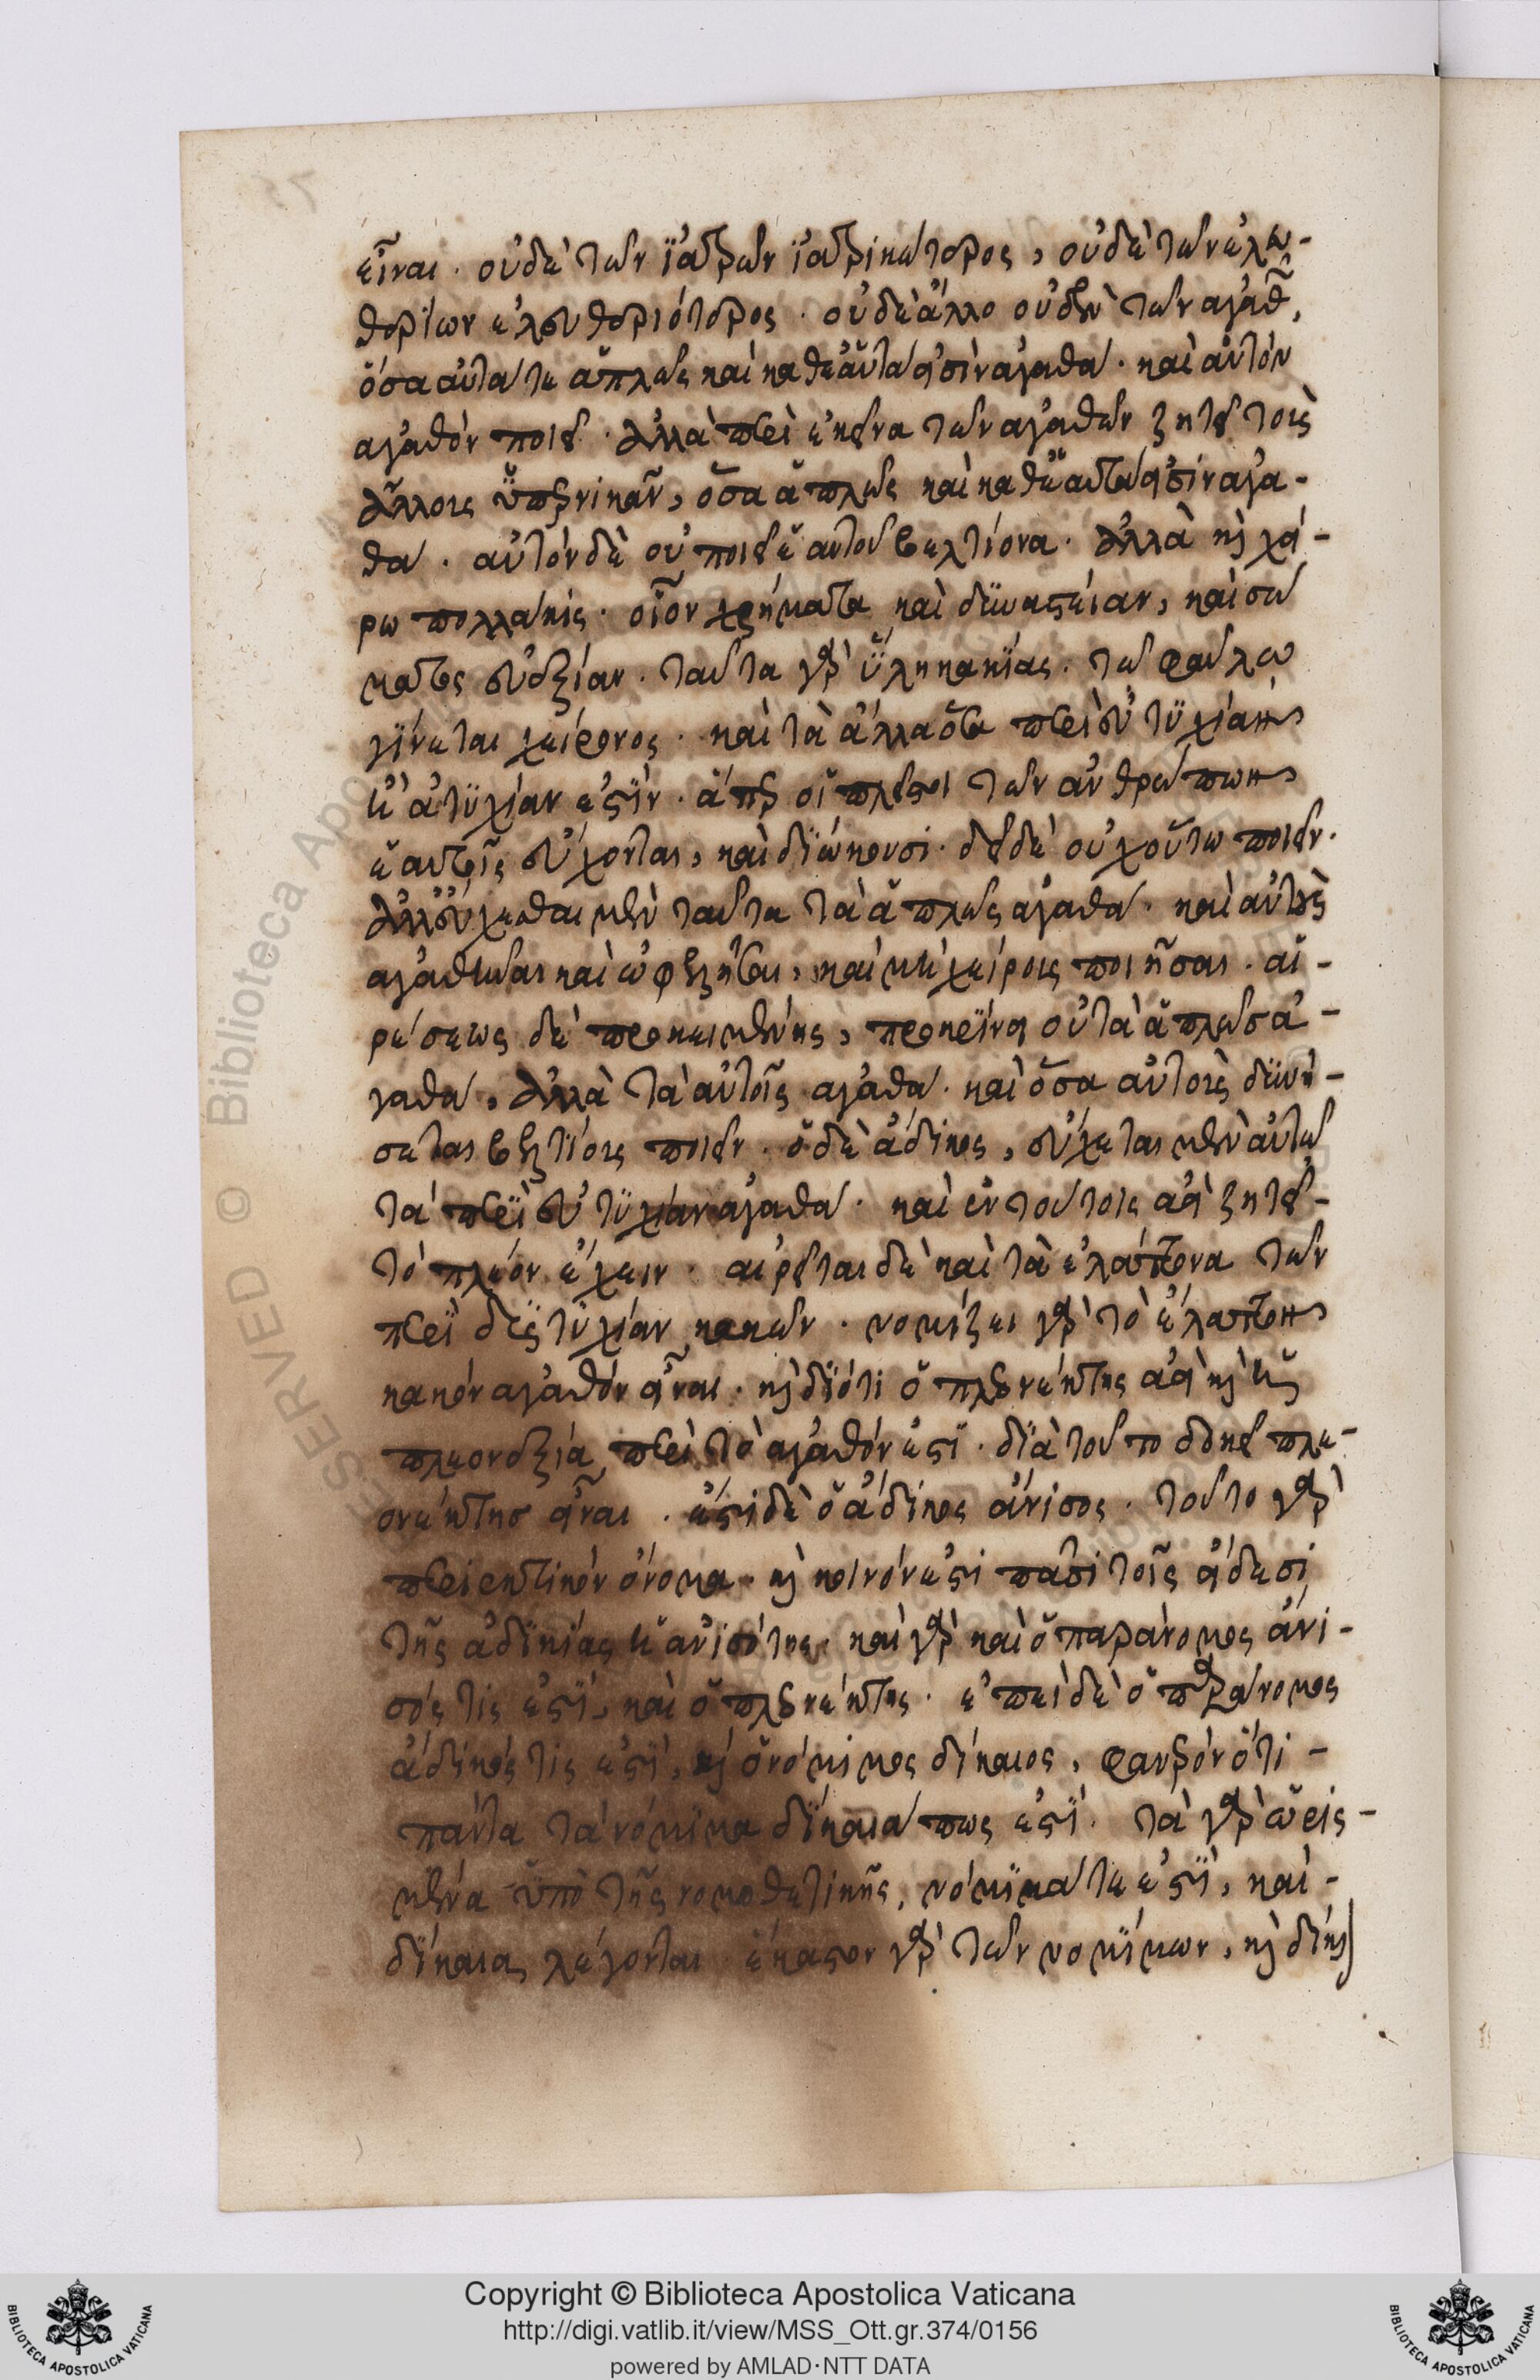 εἶναι. οὐδὲ τῶν ἰατρῶν ἰατρικώτερος, οὐδὲ τῶν ἐλευ-
θερίων ἐλευθεριότερος. οὐδὲ ἄλλο οὐδὲν τῶν ἀγαθῶν,
ὅσα αὐτά τε ἁπλῶς καὶ καθ' ἑαυτά εἰσιν ἀγαθά. καὶ αὐτὸν
ἀγαθὸν ποιεῖ. ἀλλὰ περὶ ἐκεῖνα τῶν ἀγαθῶν ζητεῖ τοὺς
ἄλλους ὑπερνικᾶν, ὅσα ἁπλῶς καὶ καθ' ἑαυτά εἰσιν ἀγα-
θά. αὐτὸν δὲ οὐ ποιεῖ ἑαυτοῦ βελτίονα. ἀλλὰ καὶ χεί-
ρω πολλάκις. οἷον χρήματα καὶ δυναστείαν, καὶ σώ
ματος εὐεξίαν. ταῦτα γὰρ ὕλη κακίας. τῷ φαύλῳ
γίνεται χείρονος. καὶ τὰ ἄλλα ὅσα περὶ εὐτυχίαν
καὶ ἀτυχίαν ἐστίν. ἅπερ οἱ πλεῖστοι τῶν ἀνθρώπων
ἑαυτοῖς εὔχονται, καὶ διώκουσι. δεῖ δὲ οὐχ οὕτω ποιεῖν.
ἀλλ' εὔχεσθαι μὲν ταῦτα τὰ ἁπλῶς ἀγαθά. καὶ αὐτοὺς
ἀγαθῦναι καὶ ὠφελῆσαι, καὶ μὴ χείρους ποιῆσαι. αἱ-
ρέσεως δὲ προκειμένης, προκρίνειν οὐ τὰ ἁπλῶς ἀ-
γαθά, ἀλλὰ τὰ αὐτοῖς ἀγαθά. καὶ ὅσα αὐτοὺς δυνή-
σεται βελτίους ποιεῖν. ὁ δὲ ἄδικος, εὔχεται μὲν αὐτῷ
τὰ περὶ εὐτυχίαν ἀγαθά. καὶ ἐν τούτοις ἀεὶ ζητεῖ-
τὸ πλέον ἔχειν. αἱρεῖται δὲ καὶ τὰ ἐλάττονα τῶν
περὶ δυστυχίαν κακῶν. νομίζει γὰρ τὸ ἔλαττον
κακὸν ἀγαθὸν εἶναι. καὶ διότι ὁ πλεονέκτης ἀεὶ καὶ ἡ
πλεονεξία περὶ τὸ ἀγαθόν ἐστι. διὰ τοῦτο δοκεῖ πλε-
ονέκτης εἶναι. ἔστι δὲ ὁ ἄδικος ἄνισος. τοῦτο γὰρ
περιεκτικὸν ὄνομα. καὶ κοινόν ἐστι πᾶσι τοῖς εἴδεσι
τῆς ἀδικίας ἡ ἀνισότης. καὶ γὰρ καὶ ὁ παράνομος ἄνι-
σός τίς ἐστι, καὶ ὁ πλεονέκτης. ἐπεὶ δὲ ὁ παράνομος
ἄδικός τίς ἐστι, καὶ ὁ νόμιμος δίκαιος, φανερὸν ὅτι-
πάντα τὰ νόμιμα δίκαιά πως ἐστί. τὰ γὰρ ὡρισ-
μένα ὑπὸ τῆς νομοθετικῆς, νόμιμά τε ἐστί, καὶ-
δίκαια λέγονται. ἕκαστον γὰρ τῶν νομίμων, καὶ δίκαι
Copyright © Biblioteca Apostolica Vaticana
http://digi.vatlib.it/view/MSS_Ott.gr.374/0156
powered by AMLAD·NTT DATA